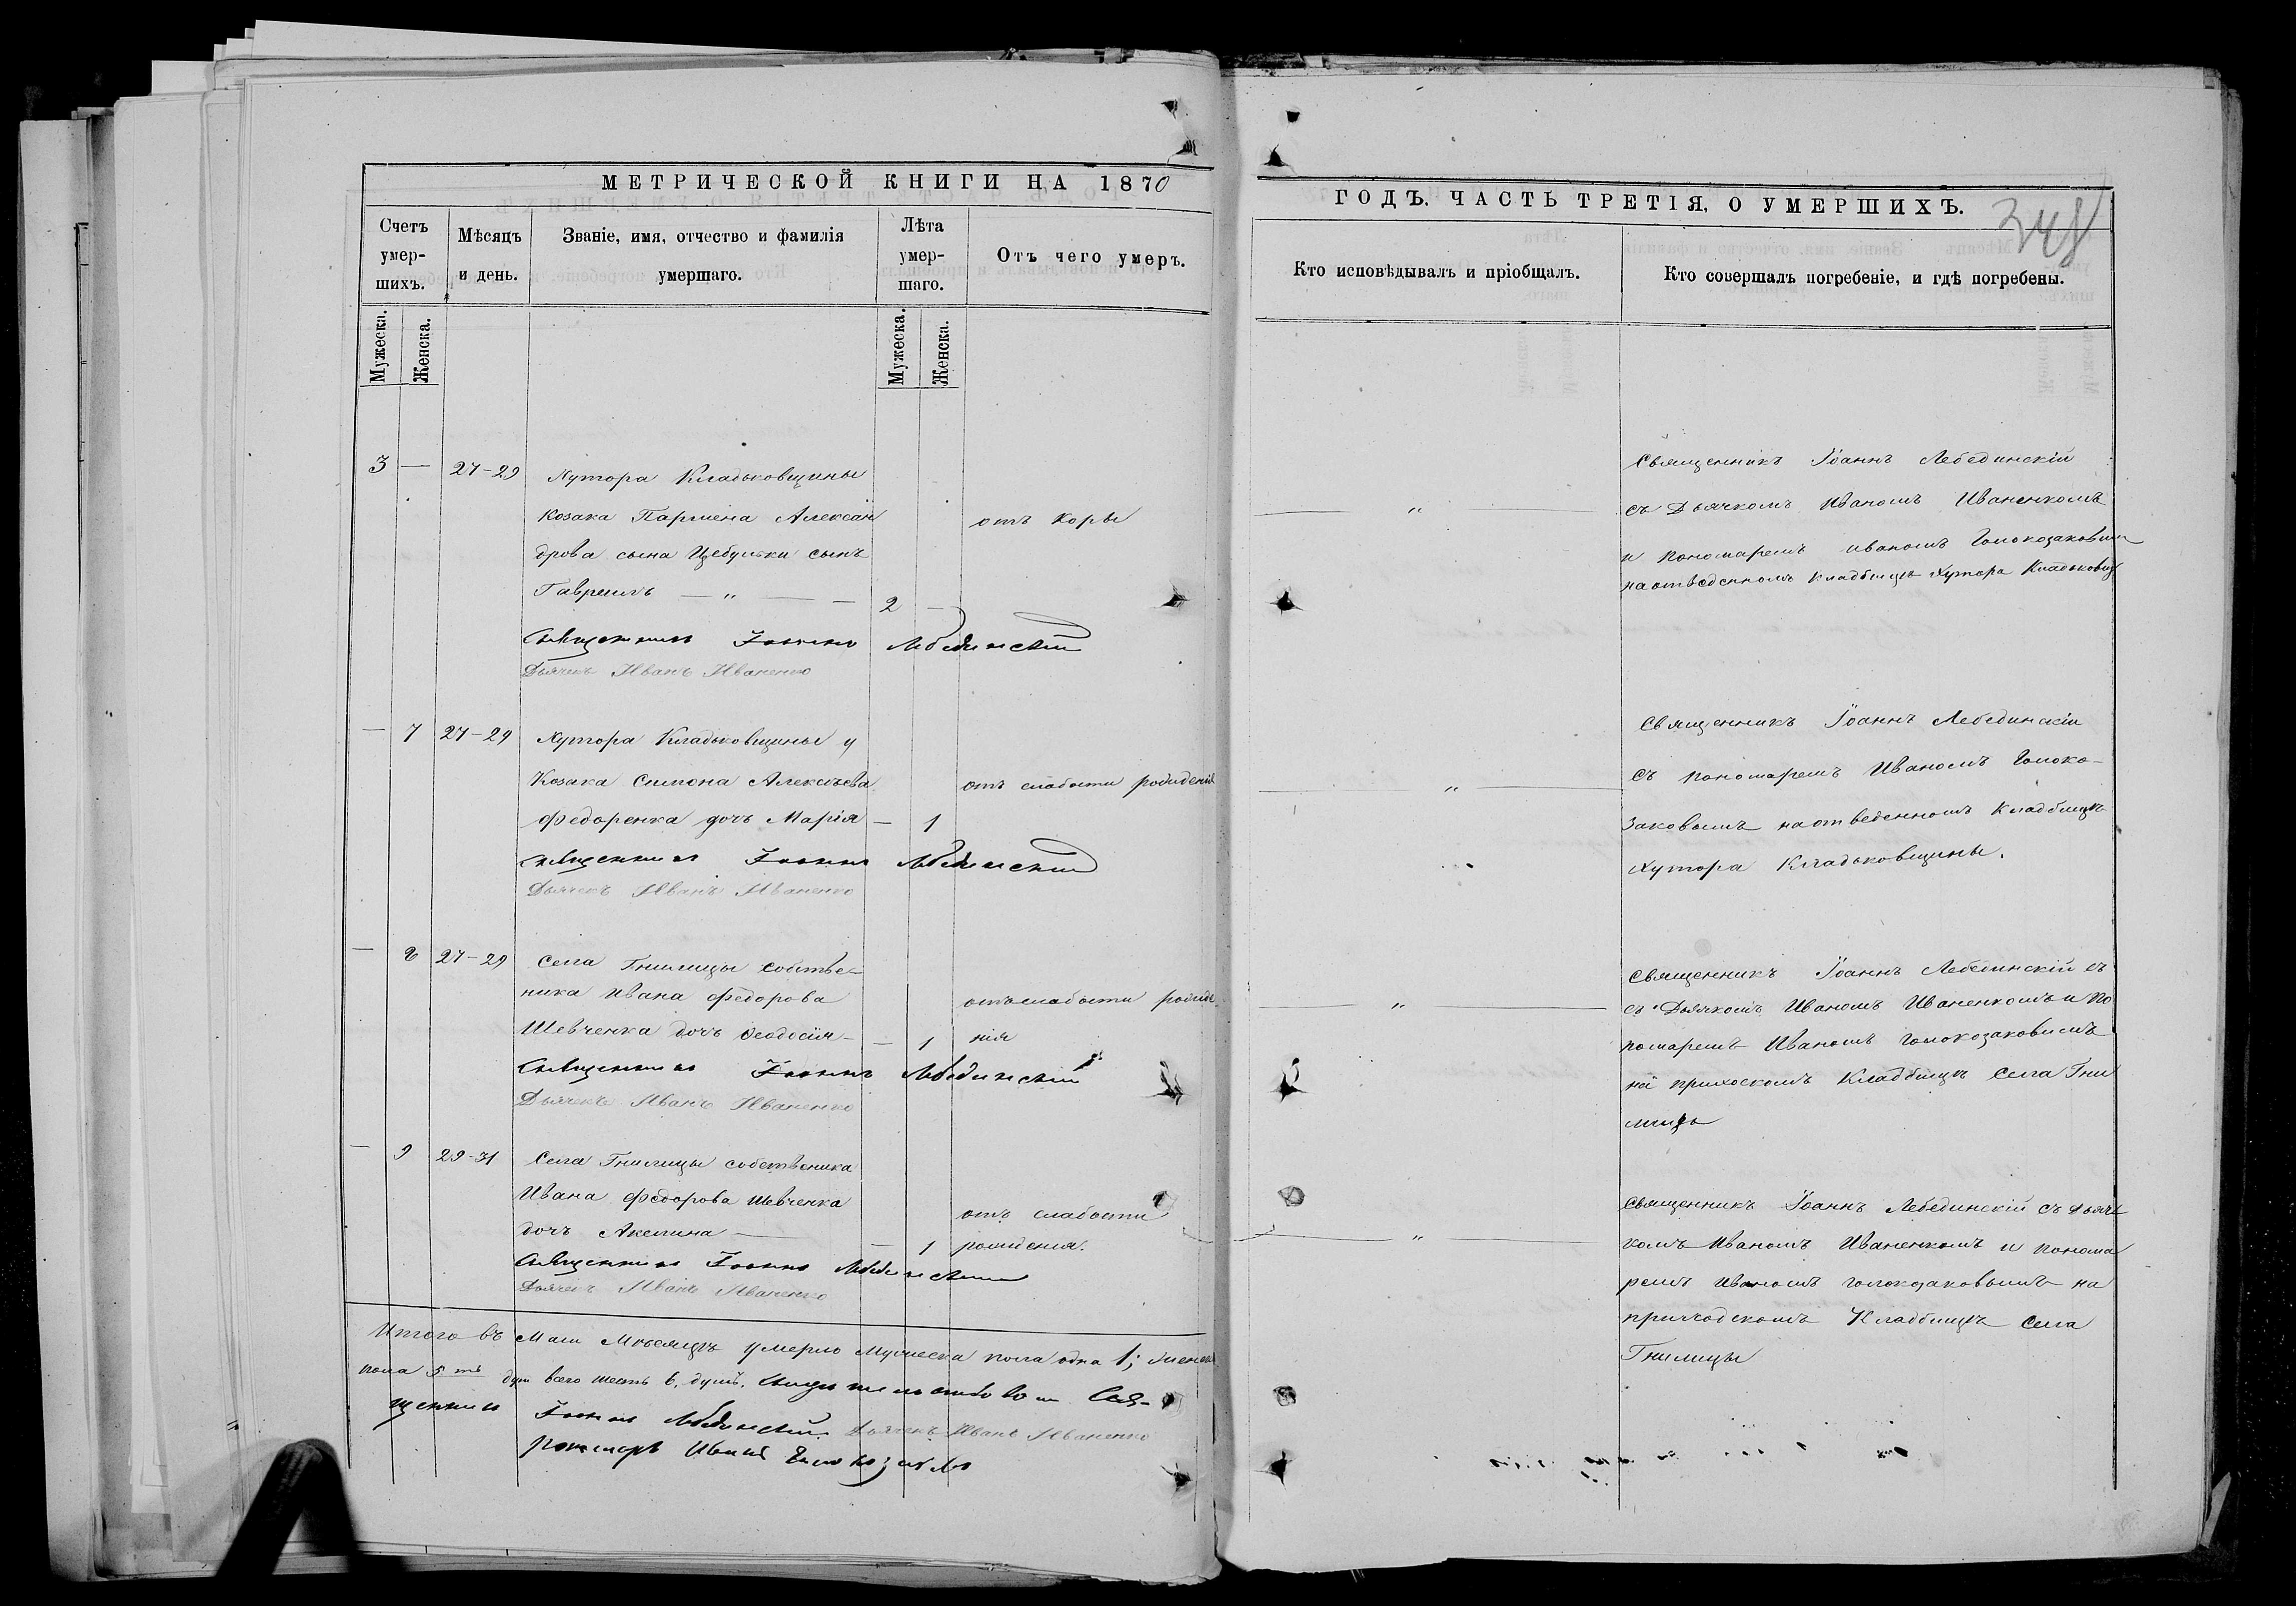 МЕТРИЧЕСКОЙ КНИГИ НА 1870
Счетъ умер-шихъ.
Мѣсяцъ и день.
Званіе, имя, отчество и фамилія умершаго.
Лѣта умер-шаго.
Отъ чего умеръ.
Мужеска.
Женска.
Мужеска.
Женска.
3 — 27-29 Хутора Кладьковщины
Козака Пармена Алексан
дрова сына Цебульки сынъ
Гавріилъ — „ — — 2 —
отъ коры
Священникъ Іоаннъ Лебединскій
Дьячекъ Иванъ Иваненко
— 7 27-29 Хутора Кладьковщины у
Козака Симона Алексѣева
отъ слабости рожденія
Федоренка дочь Марія — 1
Священникъ Іоаннъ Лебединскій
Дьячекъ Иванъ Иваненко
— 8 27-29 Села Гнилицы собстве-
ника Ивана Федорова
отъ слабости рожде
Шевченка дочь Феодосія — — 1 нія
Священникъ Іоаннъ Лебединскій
Дьячекъ Иванъ Иваненко
— 9 29-31 Села Гнилицы собственика
Ивана Федорова Шевченка
отъ слабости
дочь Акилина — — 1 рожденія.
Священникъ Іоаннъ Лебединскій
Дьячекъ Иванъ Иваненко
Итого въ Маи Мѣсяцѣ умерло Мужеска пола одна 1; Женск
пола 5 ть душ всего шесть 6, душъ. Свидѣтельствовали Свя-
щенникъ Іоаннъ Лебединскій Дьячекъ Иванъ Иваненко
Пономарь Иванъ
ГОДЪ. ЧАСТЬ ТРЕТІЯ, О УМЕРШИХЪ.
Кто исповѣдывалъ и пріобщалъ.
Кто совершалъ погребеніе, и гдѣ погребены.
Священникъ Іоаннъ Лебединскій
— „ — съ Дьячкомъ Иваномъ Иваненкомъ
и пономаремъ иваномъ Голокозаковым
на отведенномъ кладбищѣ Хутора Кладьковщ
Священникъ Іоаннъ Лебединскій
— „ — съ пономаремъ Иваномъ Голоко-
заковымъ на отведенномъ Кладбищѣ
Хутора Кладьковщины.
Священникъ Іоаннъ Лебединскій съ
— „ — съ Дьячкомъ Иваномъ Иваненкомъ и По
номаремъ Иваномъ Голокозаковымъ
на прихоскомъ Кладбищѣ Села Гни
лицы
Священникъ Іоаннъ Лебединскій съ дьяч
— „ — комъ Иваномъ Иваненкомъ и понома
ремъ Иваномъ Голокозаковымъ на
приходскомъ Кладбищѣ Села
Гнилицы